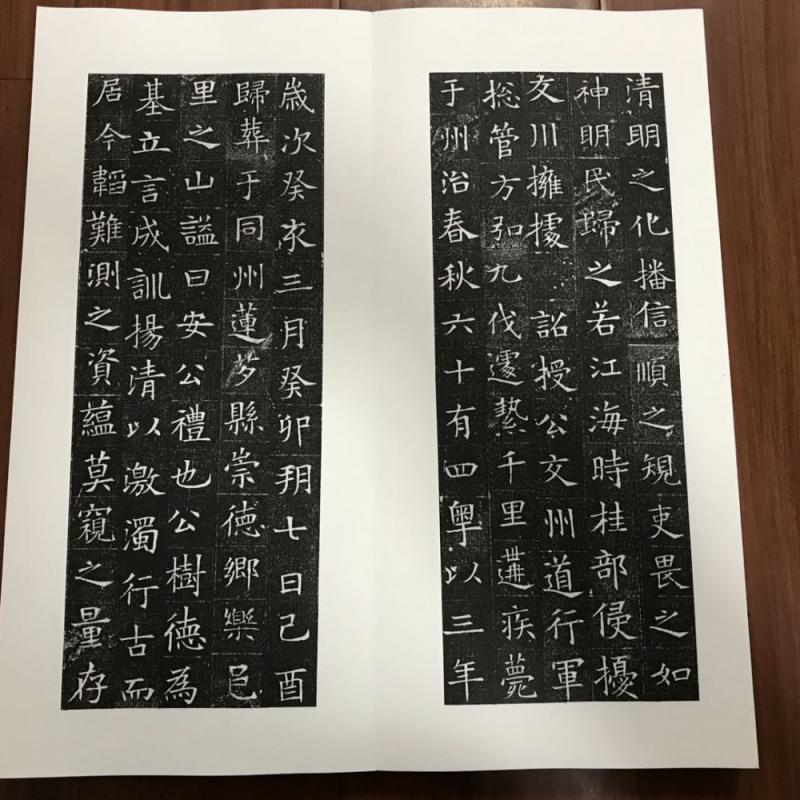 清明之化播信順之䂓吏畏之如
神明民歸之若江海時桂部侵擾
交川擁據 詔授公交州道行軍
捴管方弘九伐遽縶千里遘疾薨
于州治春秋六十有四粤以三年
歲次癸亥三月癸卯朔七日己酉
歸葬于同州蓮芍縣崇德鄉樂邑
里之山謚曰安公禮也公樹德為
基立言成訓揚清以激濁行古而
居今韜難測之資蘊莫窺之量存